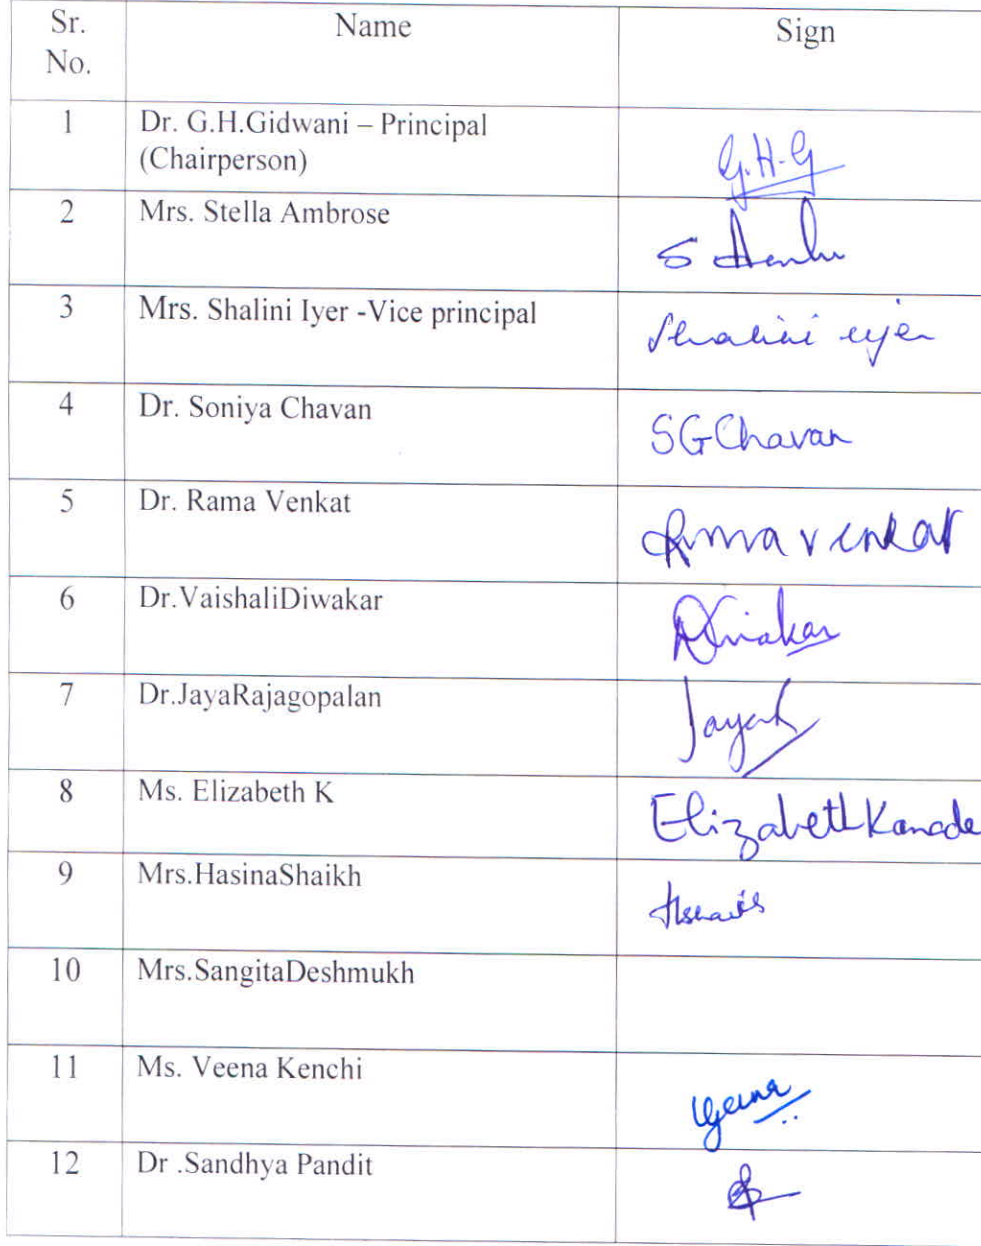 Sr. No. Name Sign
1 Dr. G.H.Gidwani – Principal G.H-G
(Chairperson)
2 Mrs. Stella Ambrose
3 Mrs. Shalini Iyer -Vice principal Shalini iyer
4 Dr. Soniya Chavan SGChavan
5 Dr. Rama Venkat Rama Venkat
6 Dr.VaishaliDiwakar
7 Dr.JayaRajagopalan
8 Ms. Elizabeth K Elizabeth Kanade
9 Mrs.HasinaShaikh
10 Mrs.SangitaDeshmukh
11 Ms. Veena Kenchi Veena
12 Dr .Sandhya Pandit